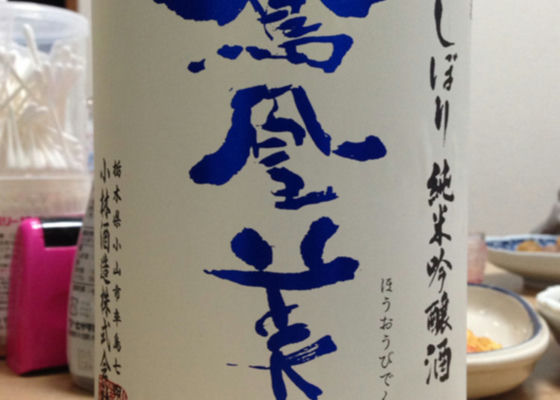 しぼり 純米吟醸酒
鳳凰美
ほうおうびでん
栃木県小山市卒島七
小林酒造株式会社